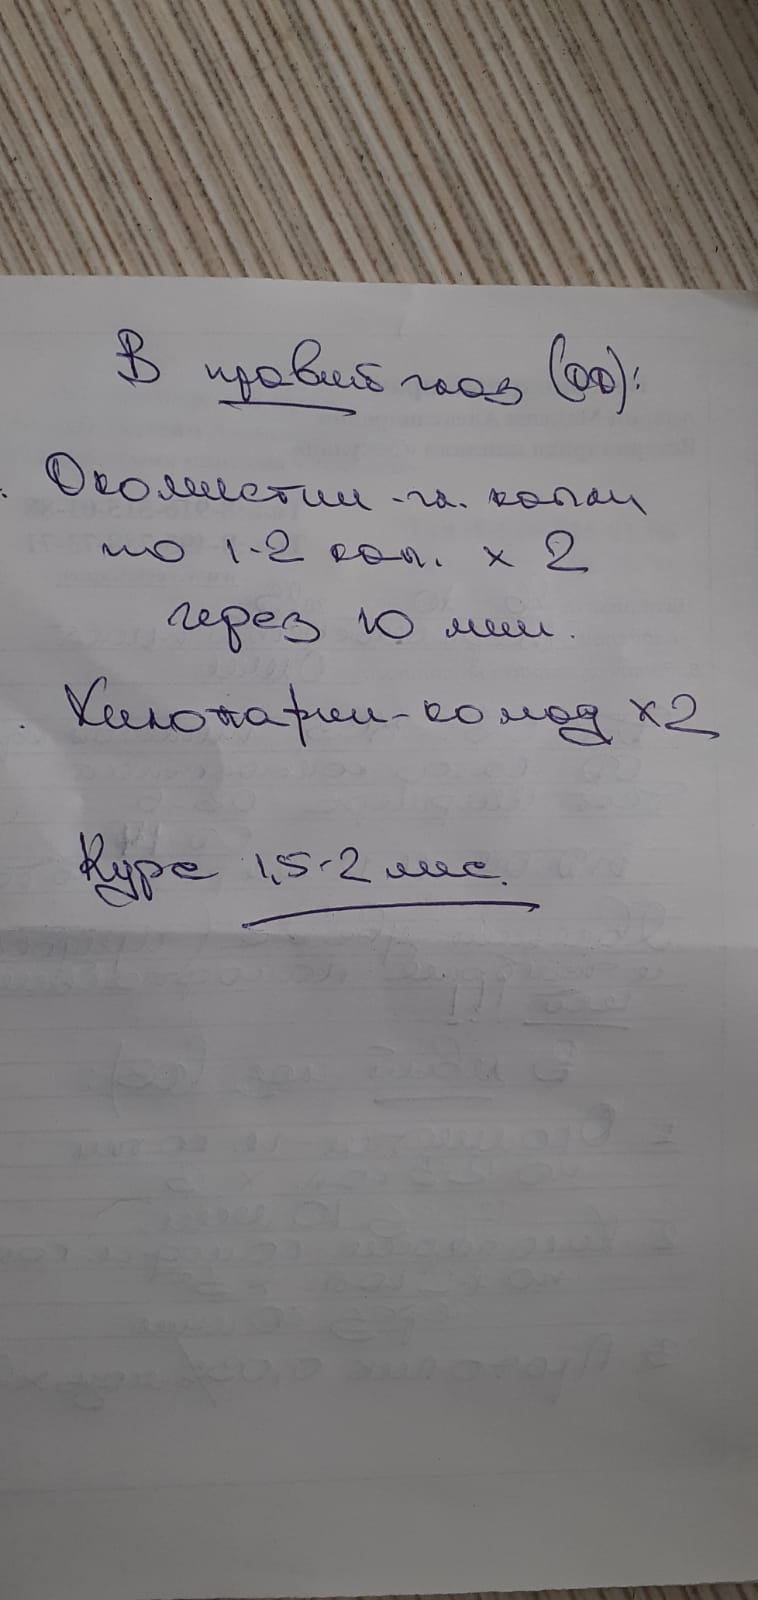 В правый глаз (OD):
Окомистин - гл. капли
по 1-2 кап. х 2
через 10 мин.
Хилопарин-комод х2
Курс 1,5-2 мес.